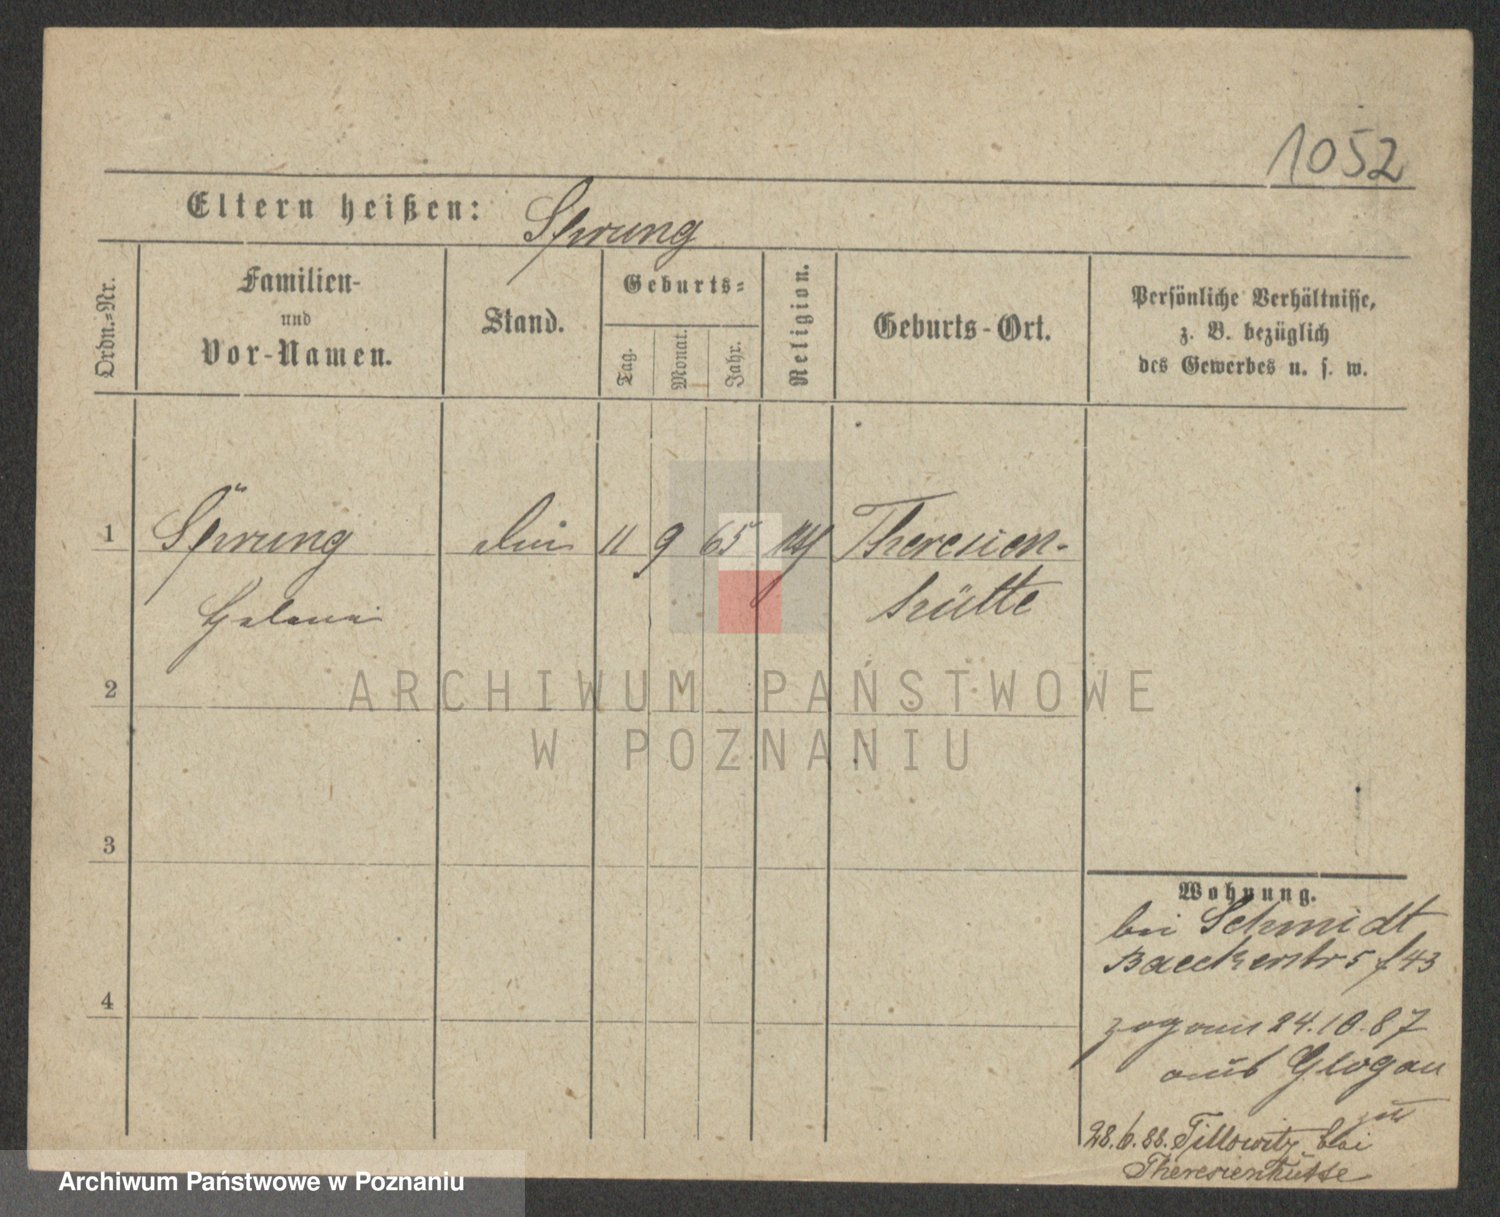 1052
Eltern heißen: Sprung
Ordn.-Nr.
Familien-
und
Vor-Namen.
Stand.
Geburts-
Tag.
Monat.
Jahr.
Religion.
Geburts-Ort.
Persönliche Verhältnisse,
z. B. bezüglich
des Gewerbes u. s. w.
1 Sprung 11 9 65 Theresien-
Helene hütte
2
3
4
ARCHIWUM PAŃSTWOWE
W POZNANIU
Wohnung.
bei Schmidt
Baeckerstr 5
24.10.87
aus Glogau
28.6.88. Tillowitz bei
Theresienhütte
Archiwum Państwowe w Poznaniu